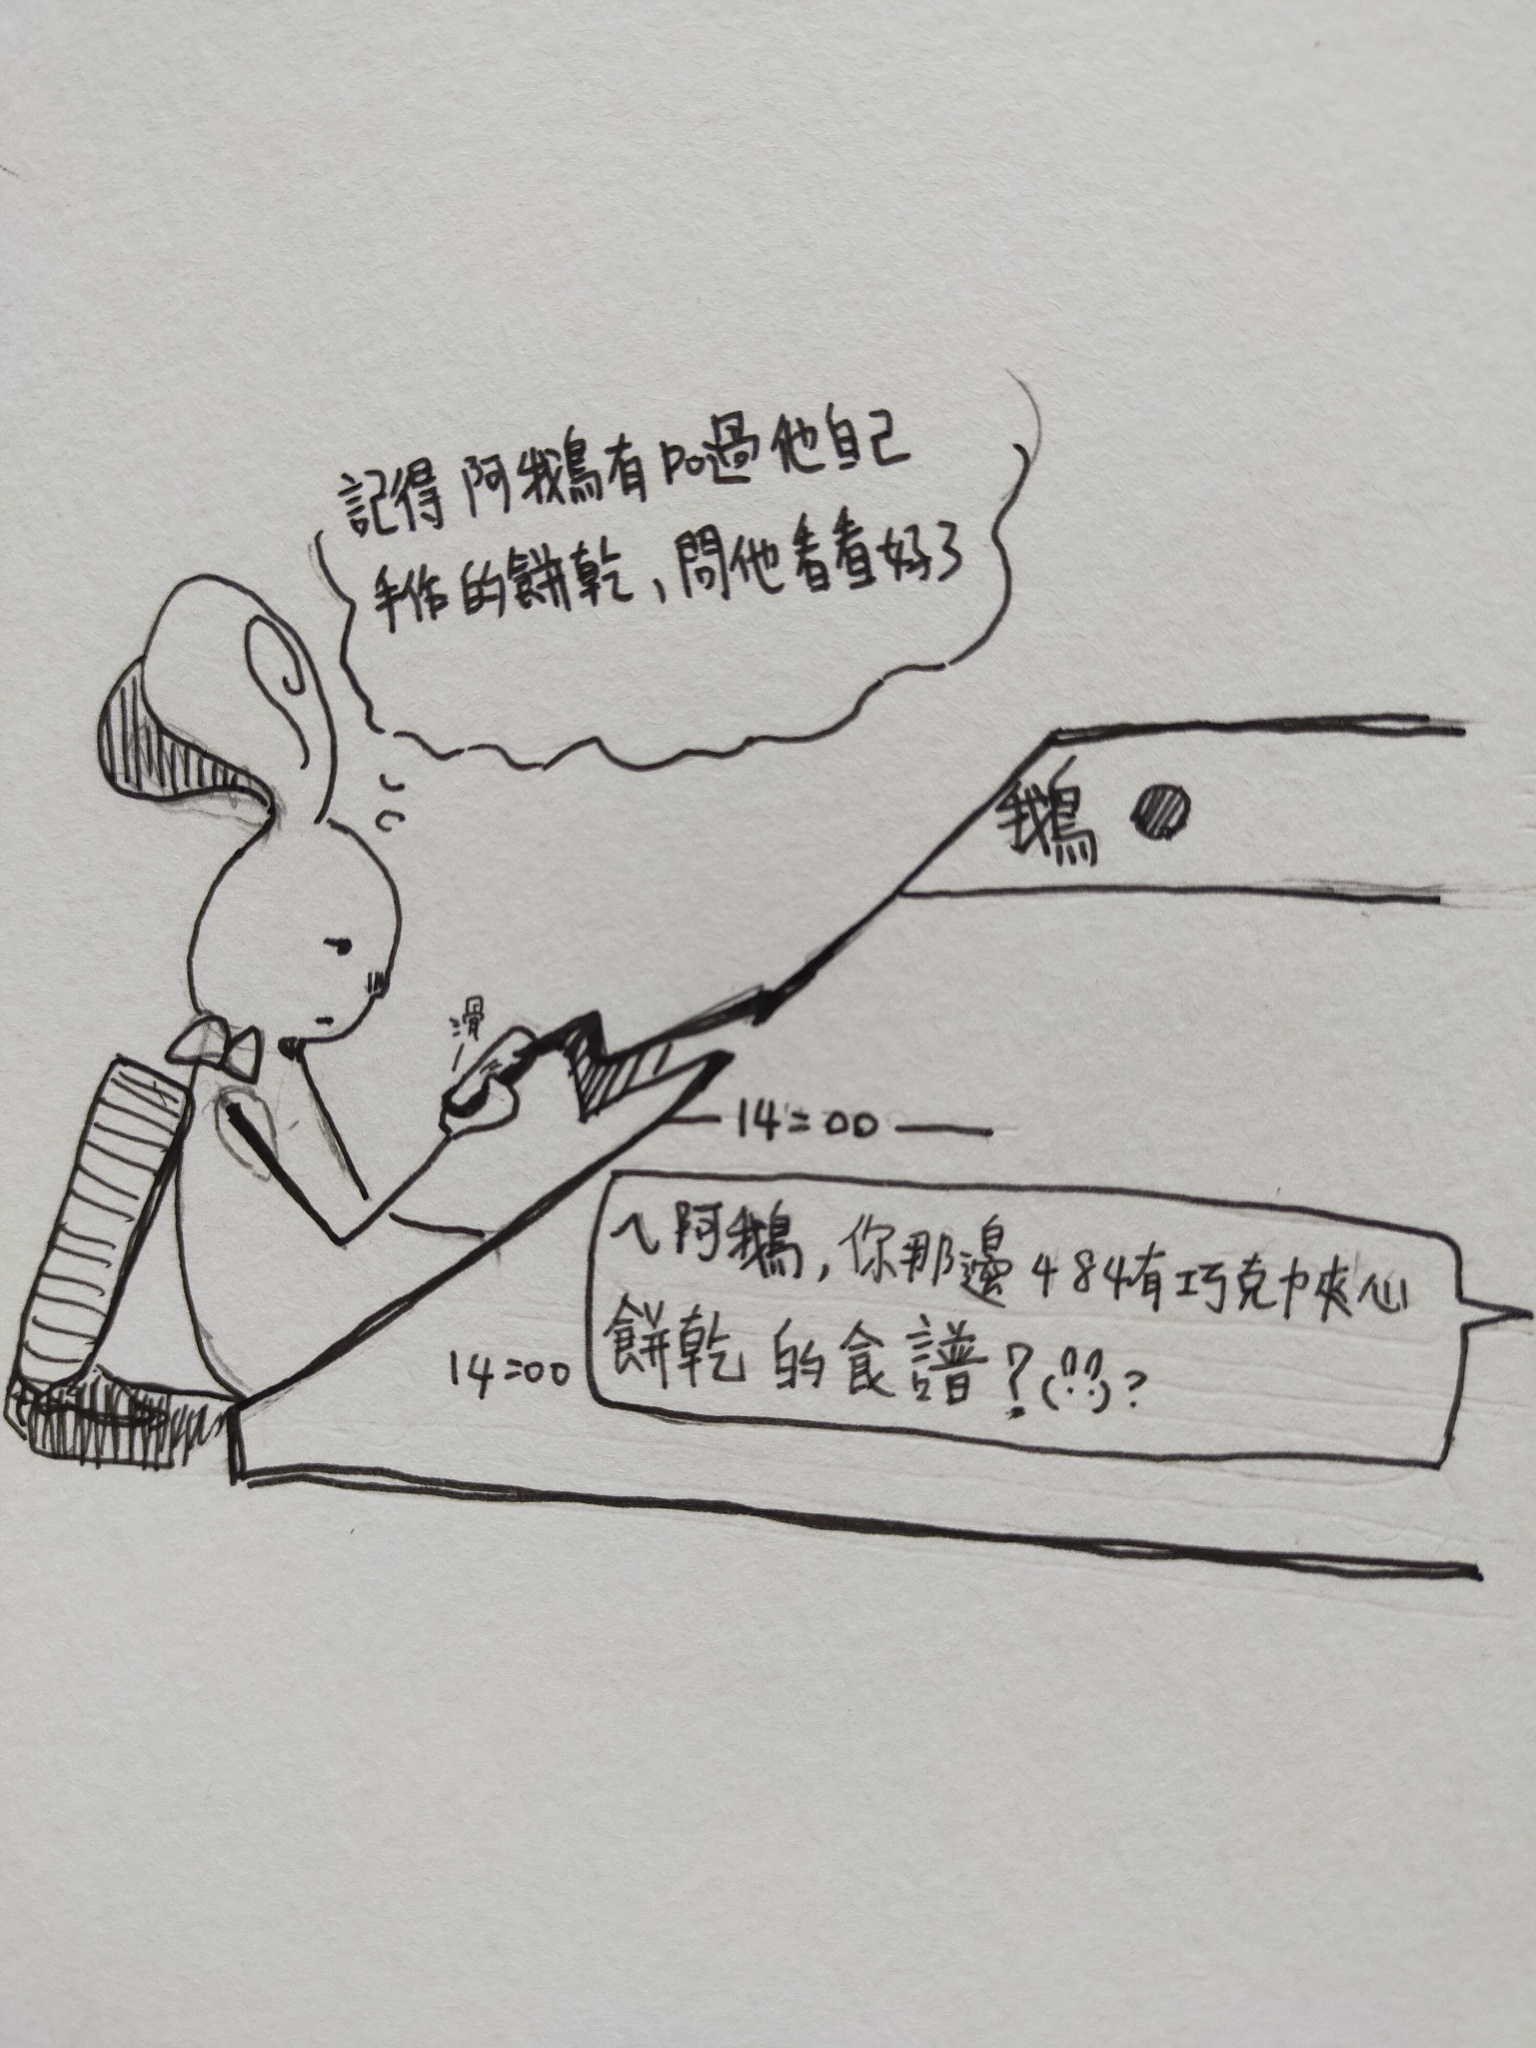 記得阿鵝有po過他自己
手作的餅乾,問他看看好了
鵝
滑
14:00
ㄟ阿鵝,你那邊484有巧克力夾心
餅乾的食譜?(¨)?
14:00